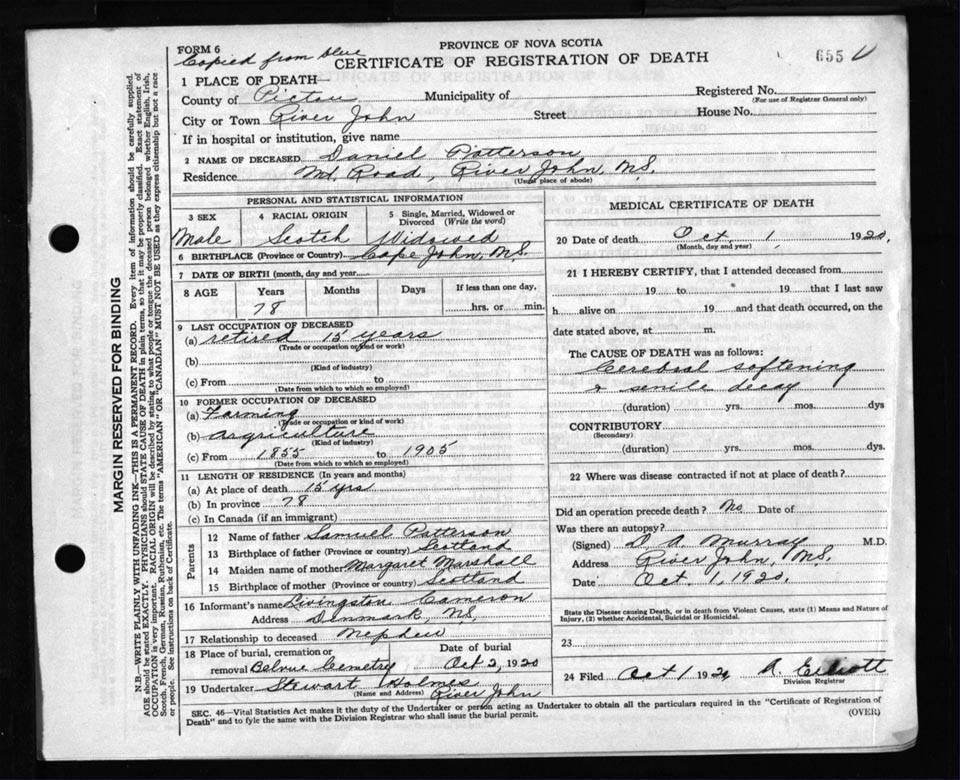 FORM 6
Copied from blue
PROVINCE OF NOVA SCOTIA
CERTIFICATE OF REGISTRATION OF DEATH
655
1 PLACE OF DEATH
County of Pictou Municipality of Registered No.
(For use of Registrar General only)
City or Town River John Street House No.
If in hospital or institution, give name
2 NAME OF DECEASED Daniel Patterson
Residence Md. Road, River John, N.S.
(Usual place of abode)
PERSONAL AND STATISTICAL INFORMATION
3 SEX 4 RACIAL ORIGIN 5 Single, Married, Widowed or Divorced (Write the word)
Male Scotch Widowed
6 BIRTHPLACE (Province or Country) Cape John, N.S.
7 DATE OF BIRTH (month, day and year)
8 AGE Years Months Days If less than one day,
78 hrs. or min.
9 LAST OCCUPATION OF DECEASED
(a) retired 15 years
(Trade or occupation or kind or work)
(b)
(Kind of industry)
(c) From to
(Date from which to which so employed)
10 FORMER OCCUPATION OF DECEASED
(a) Farming
(Trade or occupation or kind of work)
(b) agriculture
(Kind of industry)
(c) From 1855 to 1905
(Date from which to which so employed)
11 LENGTH OF RESIDENCE (In years and months)
(a) At place of death 15 yrs
(b) In province 78
(c) In Canada (if an immigrant)
Parents
12 Name of father Samuel Patterson
13 Birthplace of father (Province or country) Scotland
14 Maiden name of mother Margaret Marshall
15 Birthplace of mother (Province or country) Scotland
16 Informant's name Livingston Cameron
Address Denmark, N.S.
17 Relationship to deceased Nephew
18 Place of burial, cremation or Date of burial
removal Belvue Cemetry Oct 2, 1920
19 Undertaker Stewart Holmes
(Name and Address) River John
MEDICAL CERTIFICATE OF DEATH
20 Date of death Oct. 1, 1920,
(Month, day and year)
21 I HEREBY CERTIFY, that I attended deceased from
19 to 19 that I last saw
h alive on 19 and that death occurred, on the
date stated above, at m.
The CAUSE OF DEATH was as follows:
Cerebral softening
& senile decay
(duration) yrs. mos. dys
CONTRIBUTORY
(Secondary)
(duration) yrs. mos. dys.
22 Where was disease contracted if not at place of death?
Did an operation precede death? No Date of
Was there an autopsy?
(Signed) D. A. Murray M.D.
Address River John, N.S.
Date Oct. 1, 1920.
State the Disease causing Death, or in death from Violent Causes, state (1) Means and Nature of
Injury, (2) whether Accidental, Suicidal or Homicidal.
23
24 Filed Oct 1 1920 A
Division Registrar
SEC. 46—Vital Statistics Act makes it the duty of the Undertaker or person acting as Undertaker to obtain all the particulars required in the "Certificate of Registration of
Death" and to fyle the same with the Division Registrar who shall issue the burial permit.
(OVER)
MARGIN RESERVED FOR BINDING
N.B.—WRITE PLAINLY WITH UNFADING INK—THIS IS A PERMANENT RECORD. Every item of information should be carefully supplied.
AGE should be stated EXACTLY. PHYSICIANS should STATE CAUSE OF DEATH in plain terms, so that it may be properly classified. Exact statement of
OCCUPATION is very important. RACIAL ORIGIN will be described by stating to what people or tongue the deceased person belonged whether English, Irish,
Scotch, French, German, Russian, Ruthenian, etc. The terms "AMERICAN" OR "CANADIAN" MUST NOT BE USED as they express citizenship but not a race
or people. See instructions on back of Certificate.